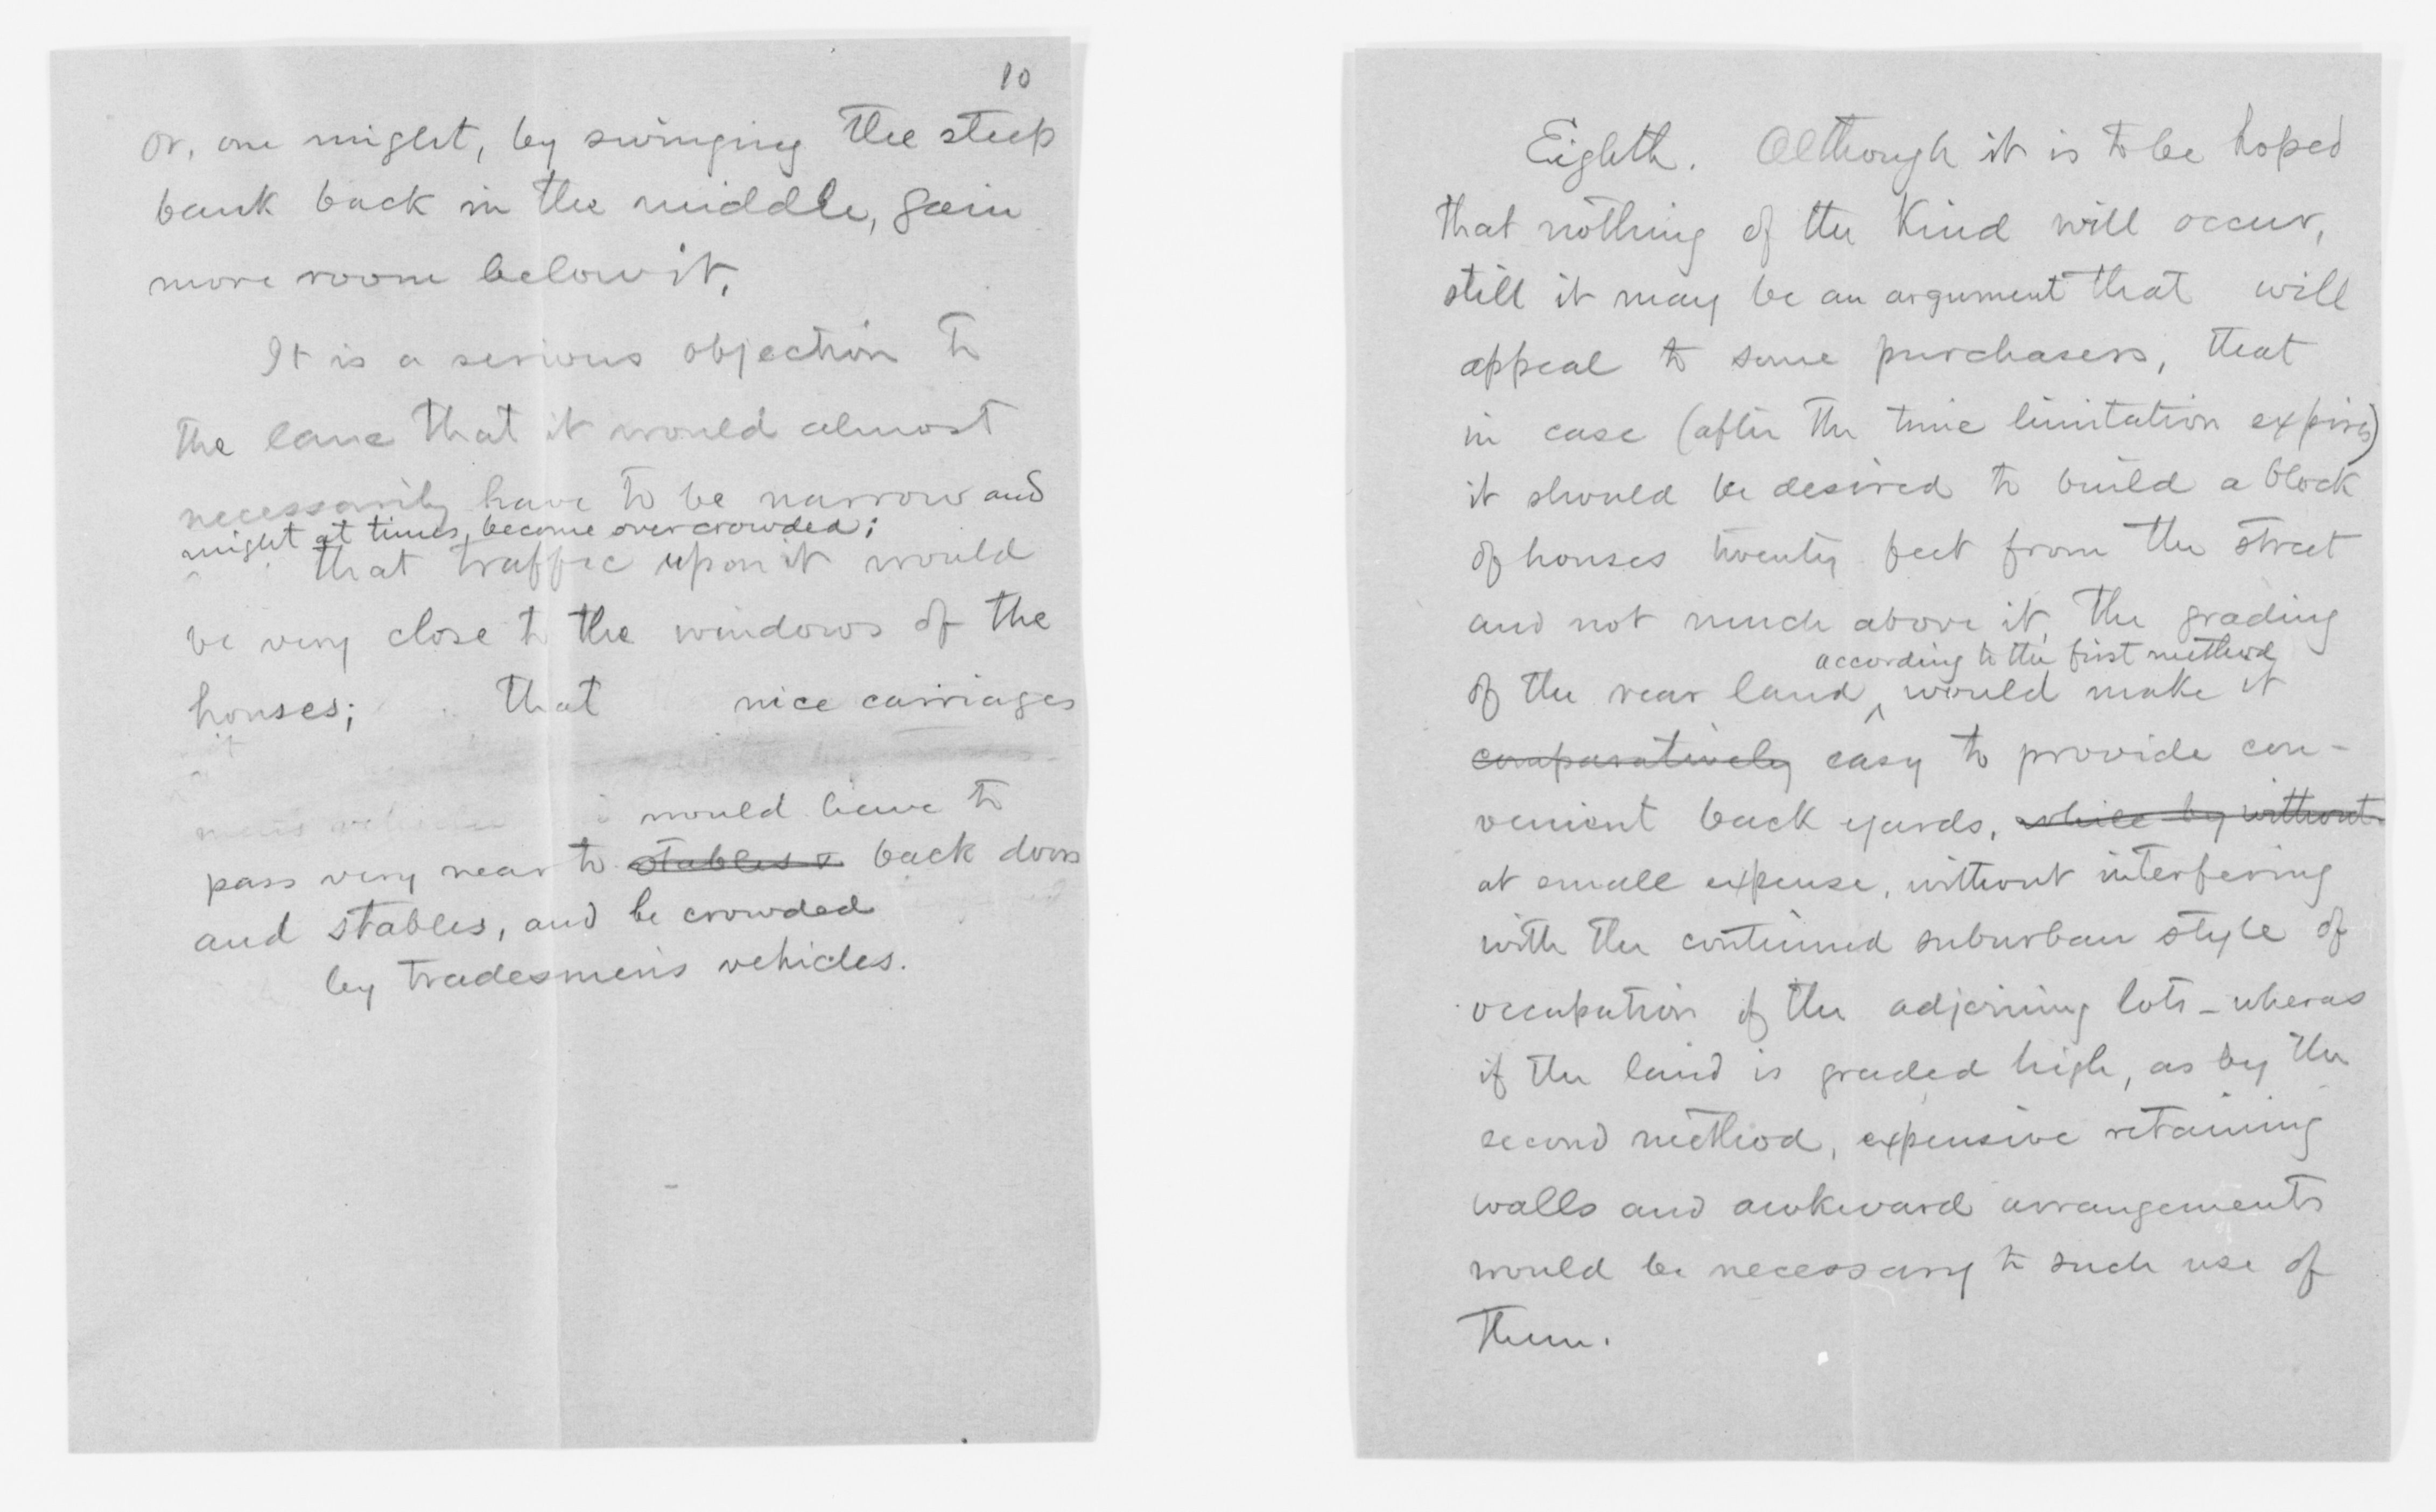 10
or, one might, by swinging the steep
bank back in the middle, gain
more room below it.
It is a serious objection to
the lane that it would almost
necessarily have to be narrow and
might at times, become overcrowded;
that traffic upon it would
be very close to the windows of the
houses; that nice carriages
would have to
pass very near to stables & back doors
and stables, and be crowded
by tradesmen's vehicles.
Eighth. Although it is to be hoped
that nothing of the kind will occur,
still it may be an argument that will
appeal to some purchasers, that
in case (after the time limitation expires)
it should be desired to build a block
of houses twenty feet from the street
and not much above it, the grading
according to the first method
of the rear land ^ would make it
comparatively easy to provide con-
venient back yards, while by without
at small expense, without interfering
with the continued suburban style of
occupation of the adjoining lots - wheras
if the land is graded high, as by the
second method, expensive retaining
walls and awkward arrangements
would be necessary to such use of
them.